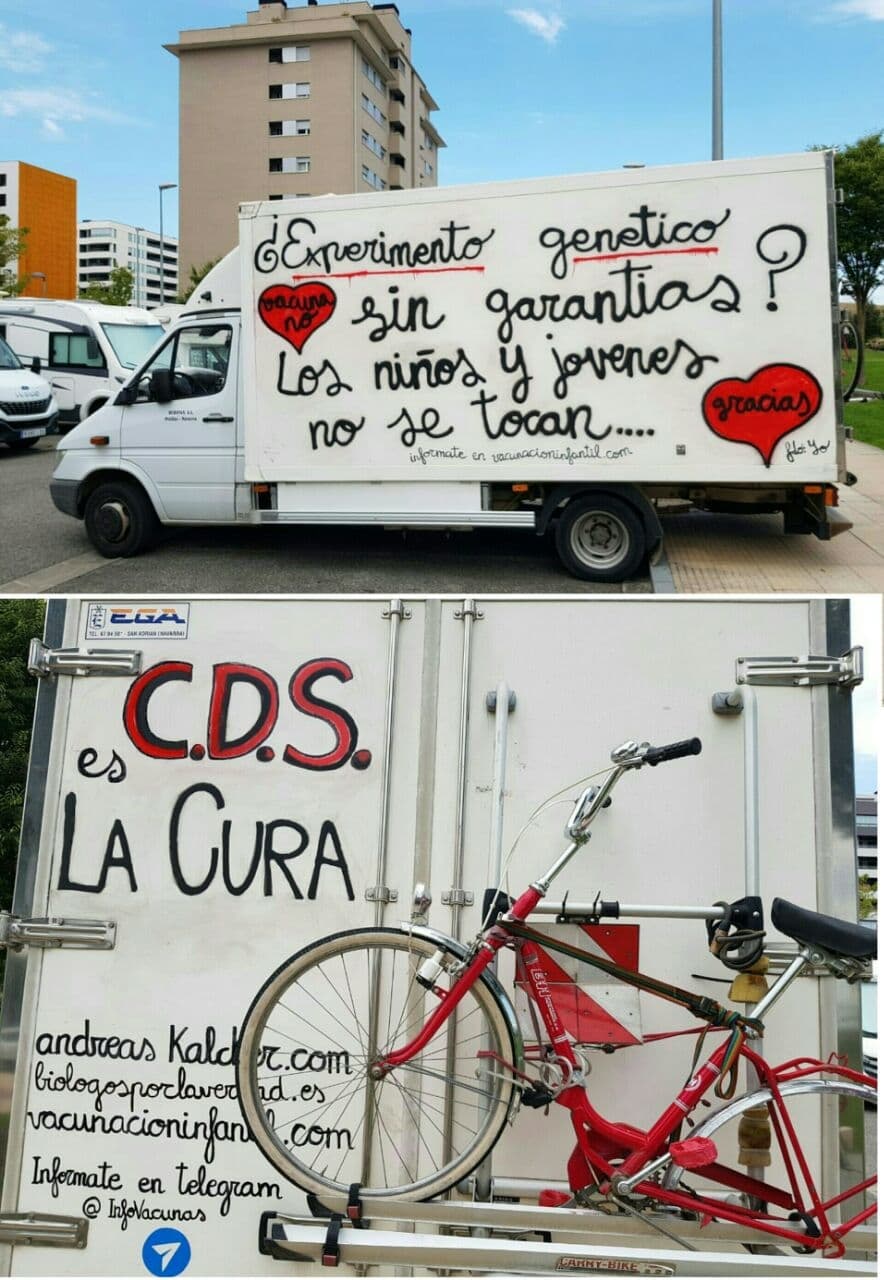 ¿Experimento genetico?
vacuna
no
sin garantias
Los niños y jovenes
no se tocan....
gracias
informate en vacunacioninfantil.com
fdo: Yo
EGA
SAN ADRIAN (NAVARRA)
C.D.S.
es
LA CURA
andreas Kalcker.com
biologosporlaverdad.es
vacunacioninfantil.com
Informate en telegram
@ InfoVacunas
CARRY-BIKE